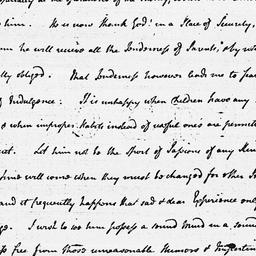 him. He is now thank God! in a Place of Security,
he will receive all the Tenderness of Parents, by
obliged. That Tenderness however leads me to fear
Indulgence: It is unhappy when Children have any
when improper Habits instead of useful ones are
Let him not be the Sport of Passions of any
Time will come when they must be changed for other
and it frequently happens that sad & dear Experience
I wish to see him possess a sound Mind in a
free from those unreasonable Humors &